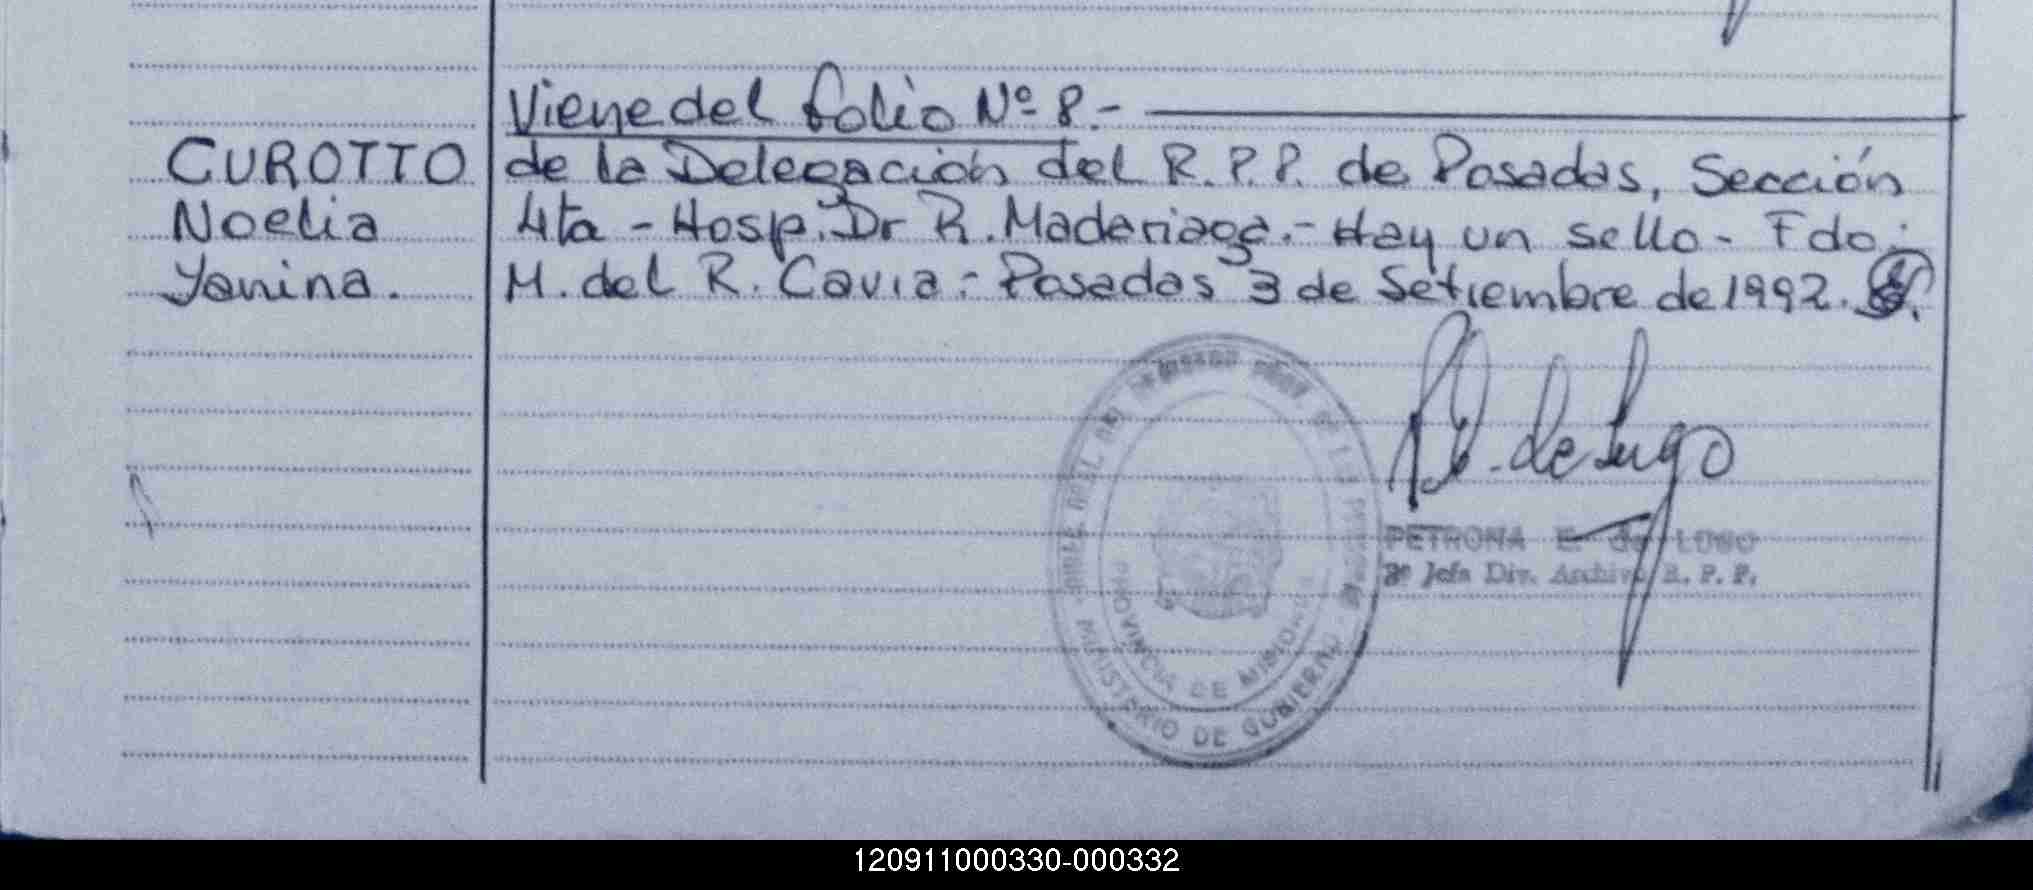 Viene del folio Nº 8.-
CUROTTO
Noelia
Yanina.
de la Delegación del R.P.P. de Posadas, Sección
4ta - Hosp. Dr R. Madariaga.- Hay un sello - Fdo:
M. del R. Cavia - Posadas 3 de Setiembre de 1992.
de Lugo
PETRONA E. de LUGO
Jefa Div. Archivo R. P. P.
PROVINCIA DE MISIONES
MINISTERIO DE GOBIERNO
120911000330-000332